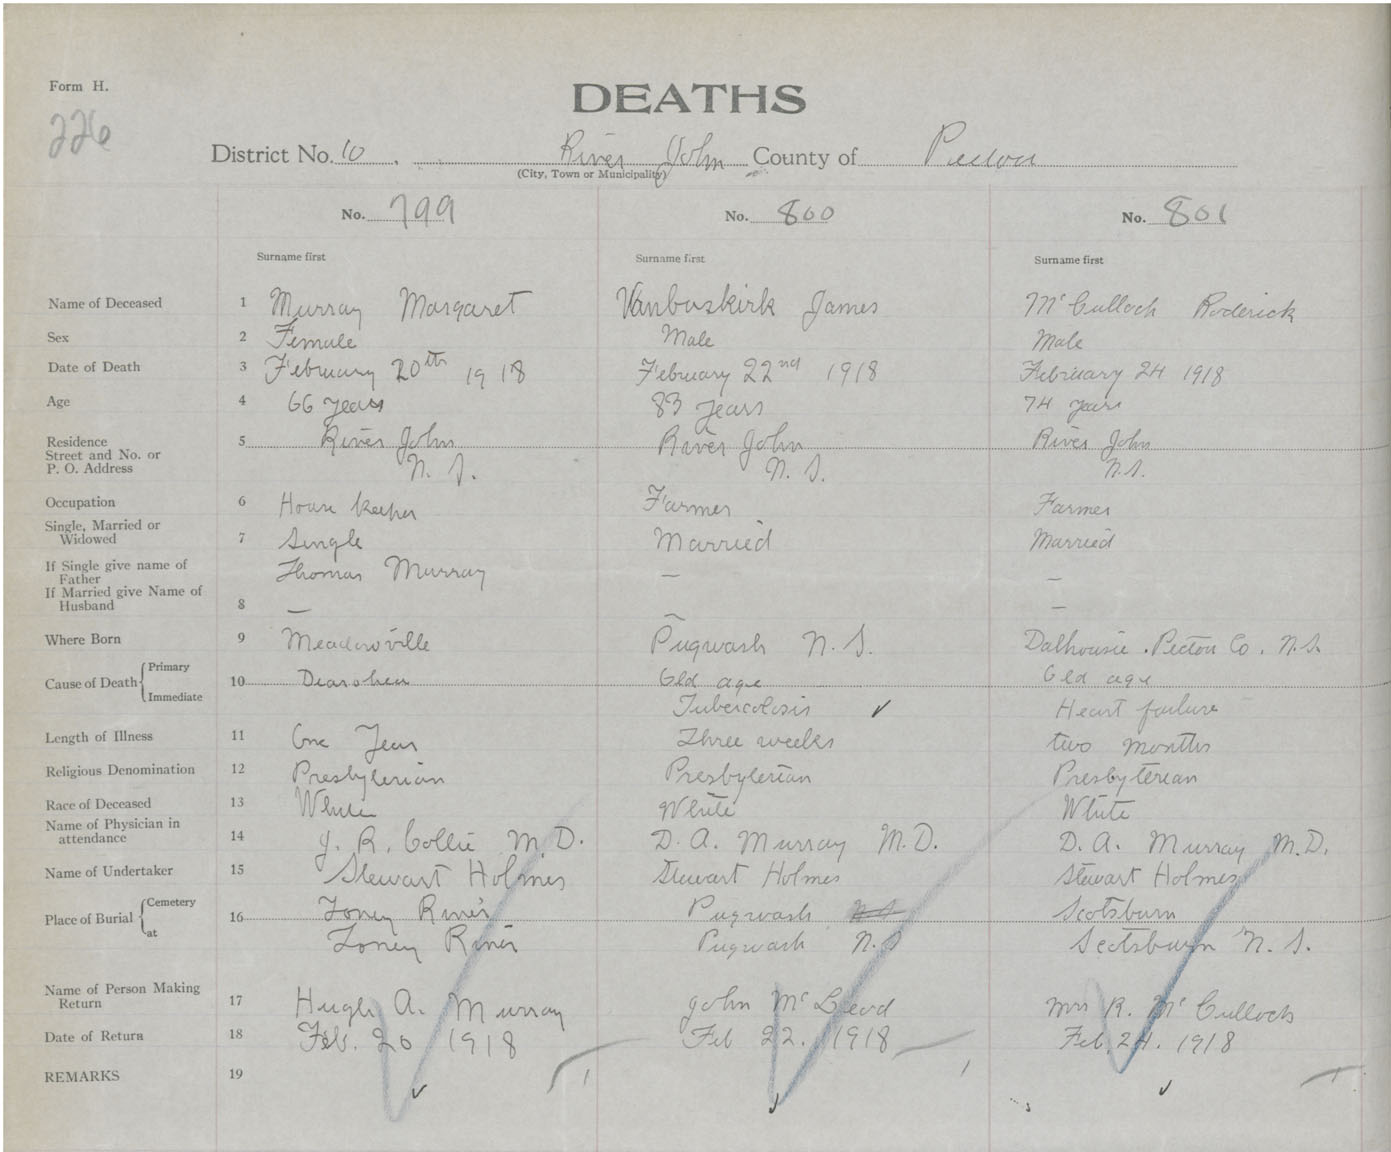 Form H.
DEATHS
226
District No. 10. River John County of Pictou
(City, Town or Municipality)
No. 799 No. 800 No. 801
Surname first Surname first Surname first
Name of Deceased 1 Murray Margaret Vanbuskirk James McCulloch Roderick
Sex 2 Female Male Male
Date of Death 3 February 20th 1918 February 22nd 1918 February 24 1918
Age 4 66 years 83 years 74 years
Residence 5 River John River John River John
Street and No. or
P. O. Address N. S. N. S. N.S.
Occupation 6 House keeper Farmer Farmer
Single, Married or
Widowed 7 Single Married Married
If Single give name of
Father Thomas Murray — —
If Married give Name of
Husband 8 — — —
Where Born 9 Meadowville Pugwash N. S. Dalhousie. Pictou Co. N.S.
Cause of Death Primary 10 Old age Old age
Immediate Tubercolosis ✓ Heart failure
Length of Illness 11 One Year Three weeks two months
Religious Denomination 12 Presbyterian Presbyterian Presbyterian
Race of Deceased 13 White White White
Name of Physician in
attendance 14 J. R. Collie M.D. D. A. Murray M.D. D. A. Murray M.D.
Name of Undertaker 15 Stewart Holmes Stewart Holmes Stewart Holmes
Place of Burial Cemetery 16 Toney River Pugwash N.S Scotsburn
at Toney River Pugwash N.S Scotsburn N. S.
Name of Person Making
Return 17 Hugh A. Murray John McLeod Mrs R. McCulloch
Date of Return 18 Feb. 20 1918 Feb 22. 1918 Feb. 24. 1918
REMARKS 19